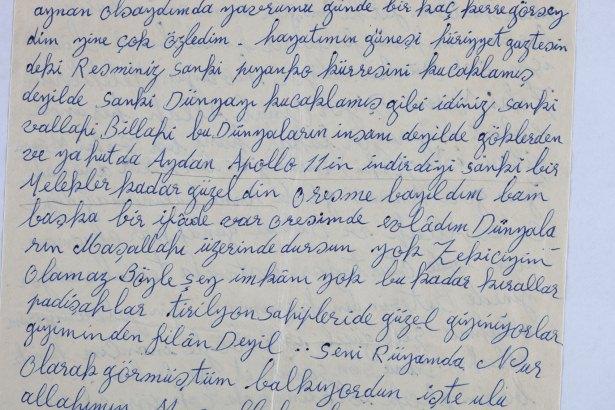 aynan olsaydımda yavrumu günde bir kaç kerre görsey
dim yine çok özledim. hayatımın güneşi hüriyyet gaztesin
deki Resminiz sanki piyanko kürresini kucaklamış
deyilde sanki Dünyayı kucaklamış gibi idiniz sanki
vallahi Billahi bu Dünyaların insanı deyilde göklerden
ve yahutda Aydan Apollo 11in indirdiyi sanki bir
Melekler kadar güzeldin oresme bayıldım bam
başka bir ifade var oresimde evlâdım Dünyala
rın Maşallahı üzerinde dursun yok Zekiciyim
olamaz Böyle şey imkânı yok bu kadar kırallar
padişahlar tirilyon sahipleride güzel giyiniyorlar
giyiminden filân Deyil .. seni Rüyamda Nur
olarak görmüştüm balkıyordun işte ulu
allahımın